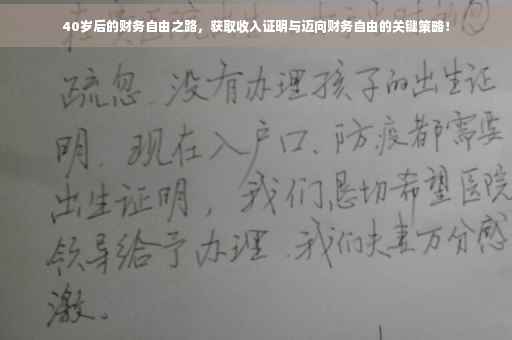 40岁后的财务自由之路，获取收入证明与迈向财务自由的关键策略！
疏忽、没有办理孩子的出生证
明、现在入户口、防疫都需要
出生证明，我们恳切希望医院
领导给予办理、我们夫妻万分感
激。